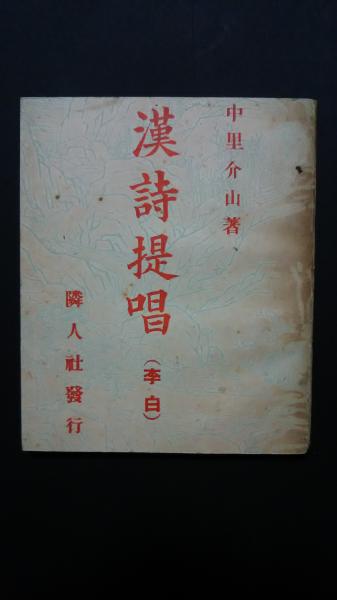 中里介山著
漢詩提唱（李白）
隣人社發行